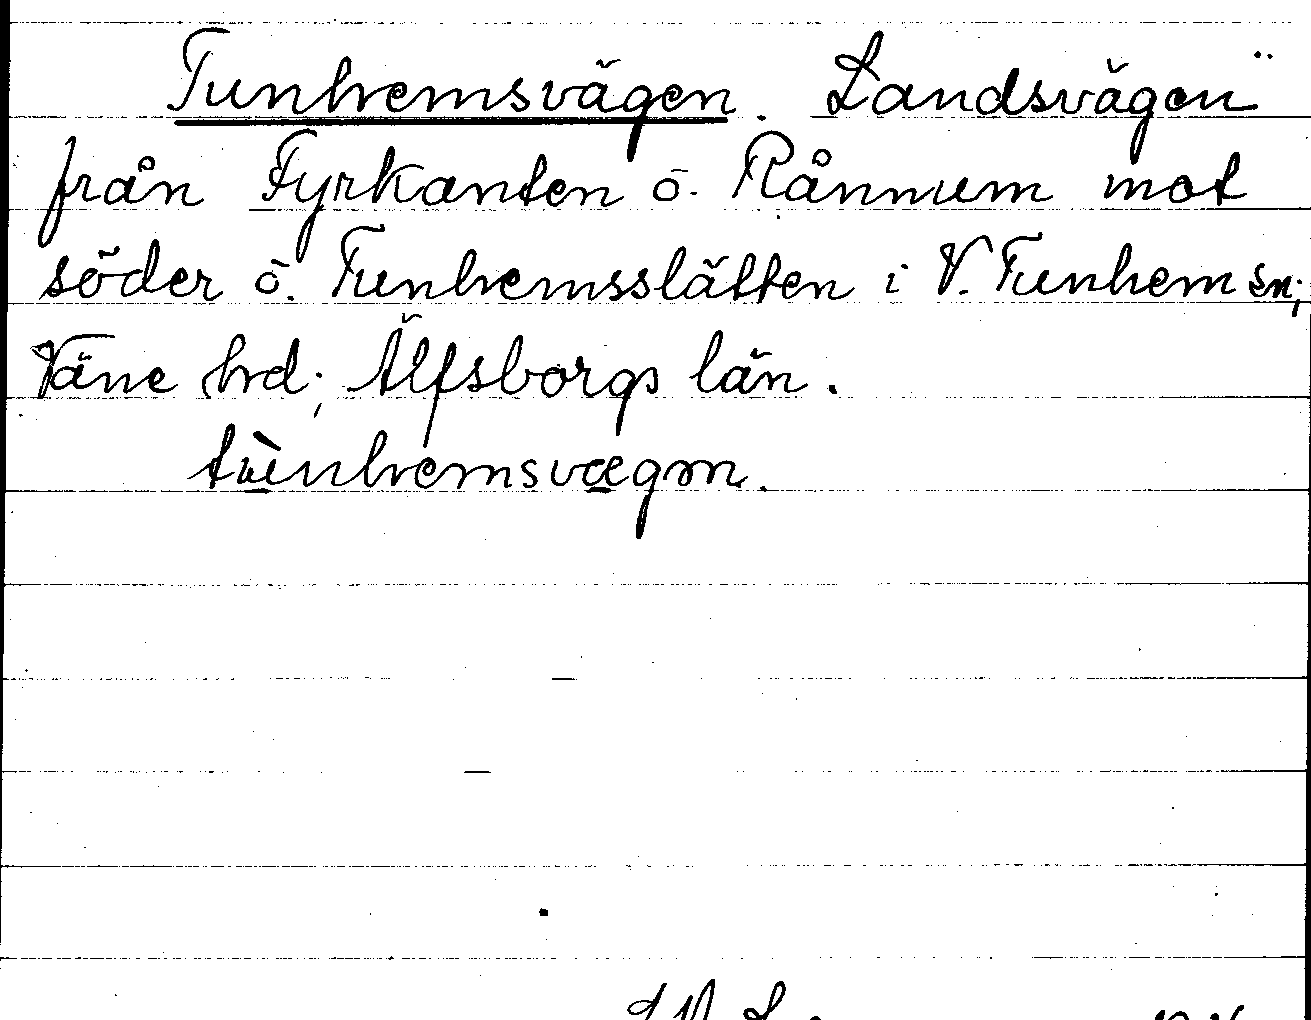 Tunhemsvägen. Landsvägen
från Fyrkanten ö. Rånnum mot
söder ö. Tunhemsslätten i V. Tunhem sn;
Väne hrd; Älfsborgs län.
tùnhemsvægɘn.